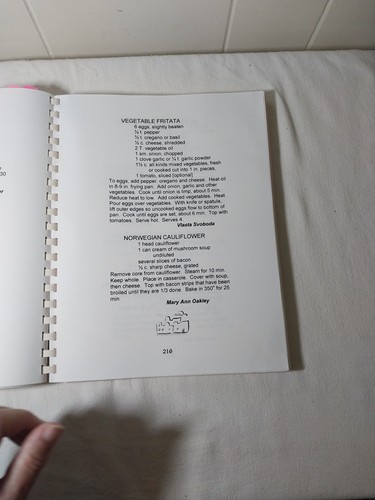 VEGETABLE FRITATA
6 eggs, slightly beaten
¼ t. pepper
½ t. oregano or basil
½ c. cheese, shredded
2 T. vegetable oil
1 sm. onion, chopped
1 clove garlic or ¼ t. garlic powder
1½ c. all kinds mixed vegetables, fresh
or cooked cut into 1 in. pieces,
1 tomato, sliced [optional]
To eggs, add pepper, oregano and cheese. Heat oil
in 8-9 in. frying pan. Add onion, garlic and other
vegetables. Cook until onion is limp, about 5 min.
Reduce heat to low. Add cooked vegetables. Heat.
Pour eggs over vegetables. With knife or spatula,
lift outer edges so uncooked eggs flow to bottom of
pan. Cook until eggs are set, about 6 min. Top with
tomatoes. Serve hot. Serves 4.
Vlasta Svoboda
NORWEGIAN CAULIFLOWER
1 head cauliflower
1 can cream of mushroom soup
undiluted
several slices of bacon
½ c. sharp cheese, grated
Remove core from cauliflower. Steam for 10 min.
Keep whole. Place in casserole. Cover with soup,
then cheese. Top with bacon strips that have been
broiled until they are 1/3 done. Bake in 350° for 25
min.
Mary Ann Oakley
210